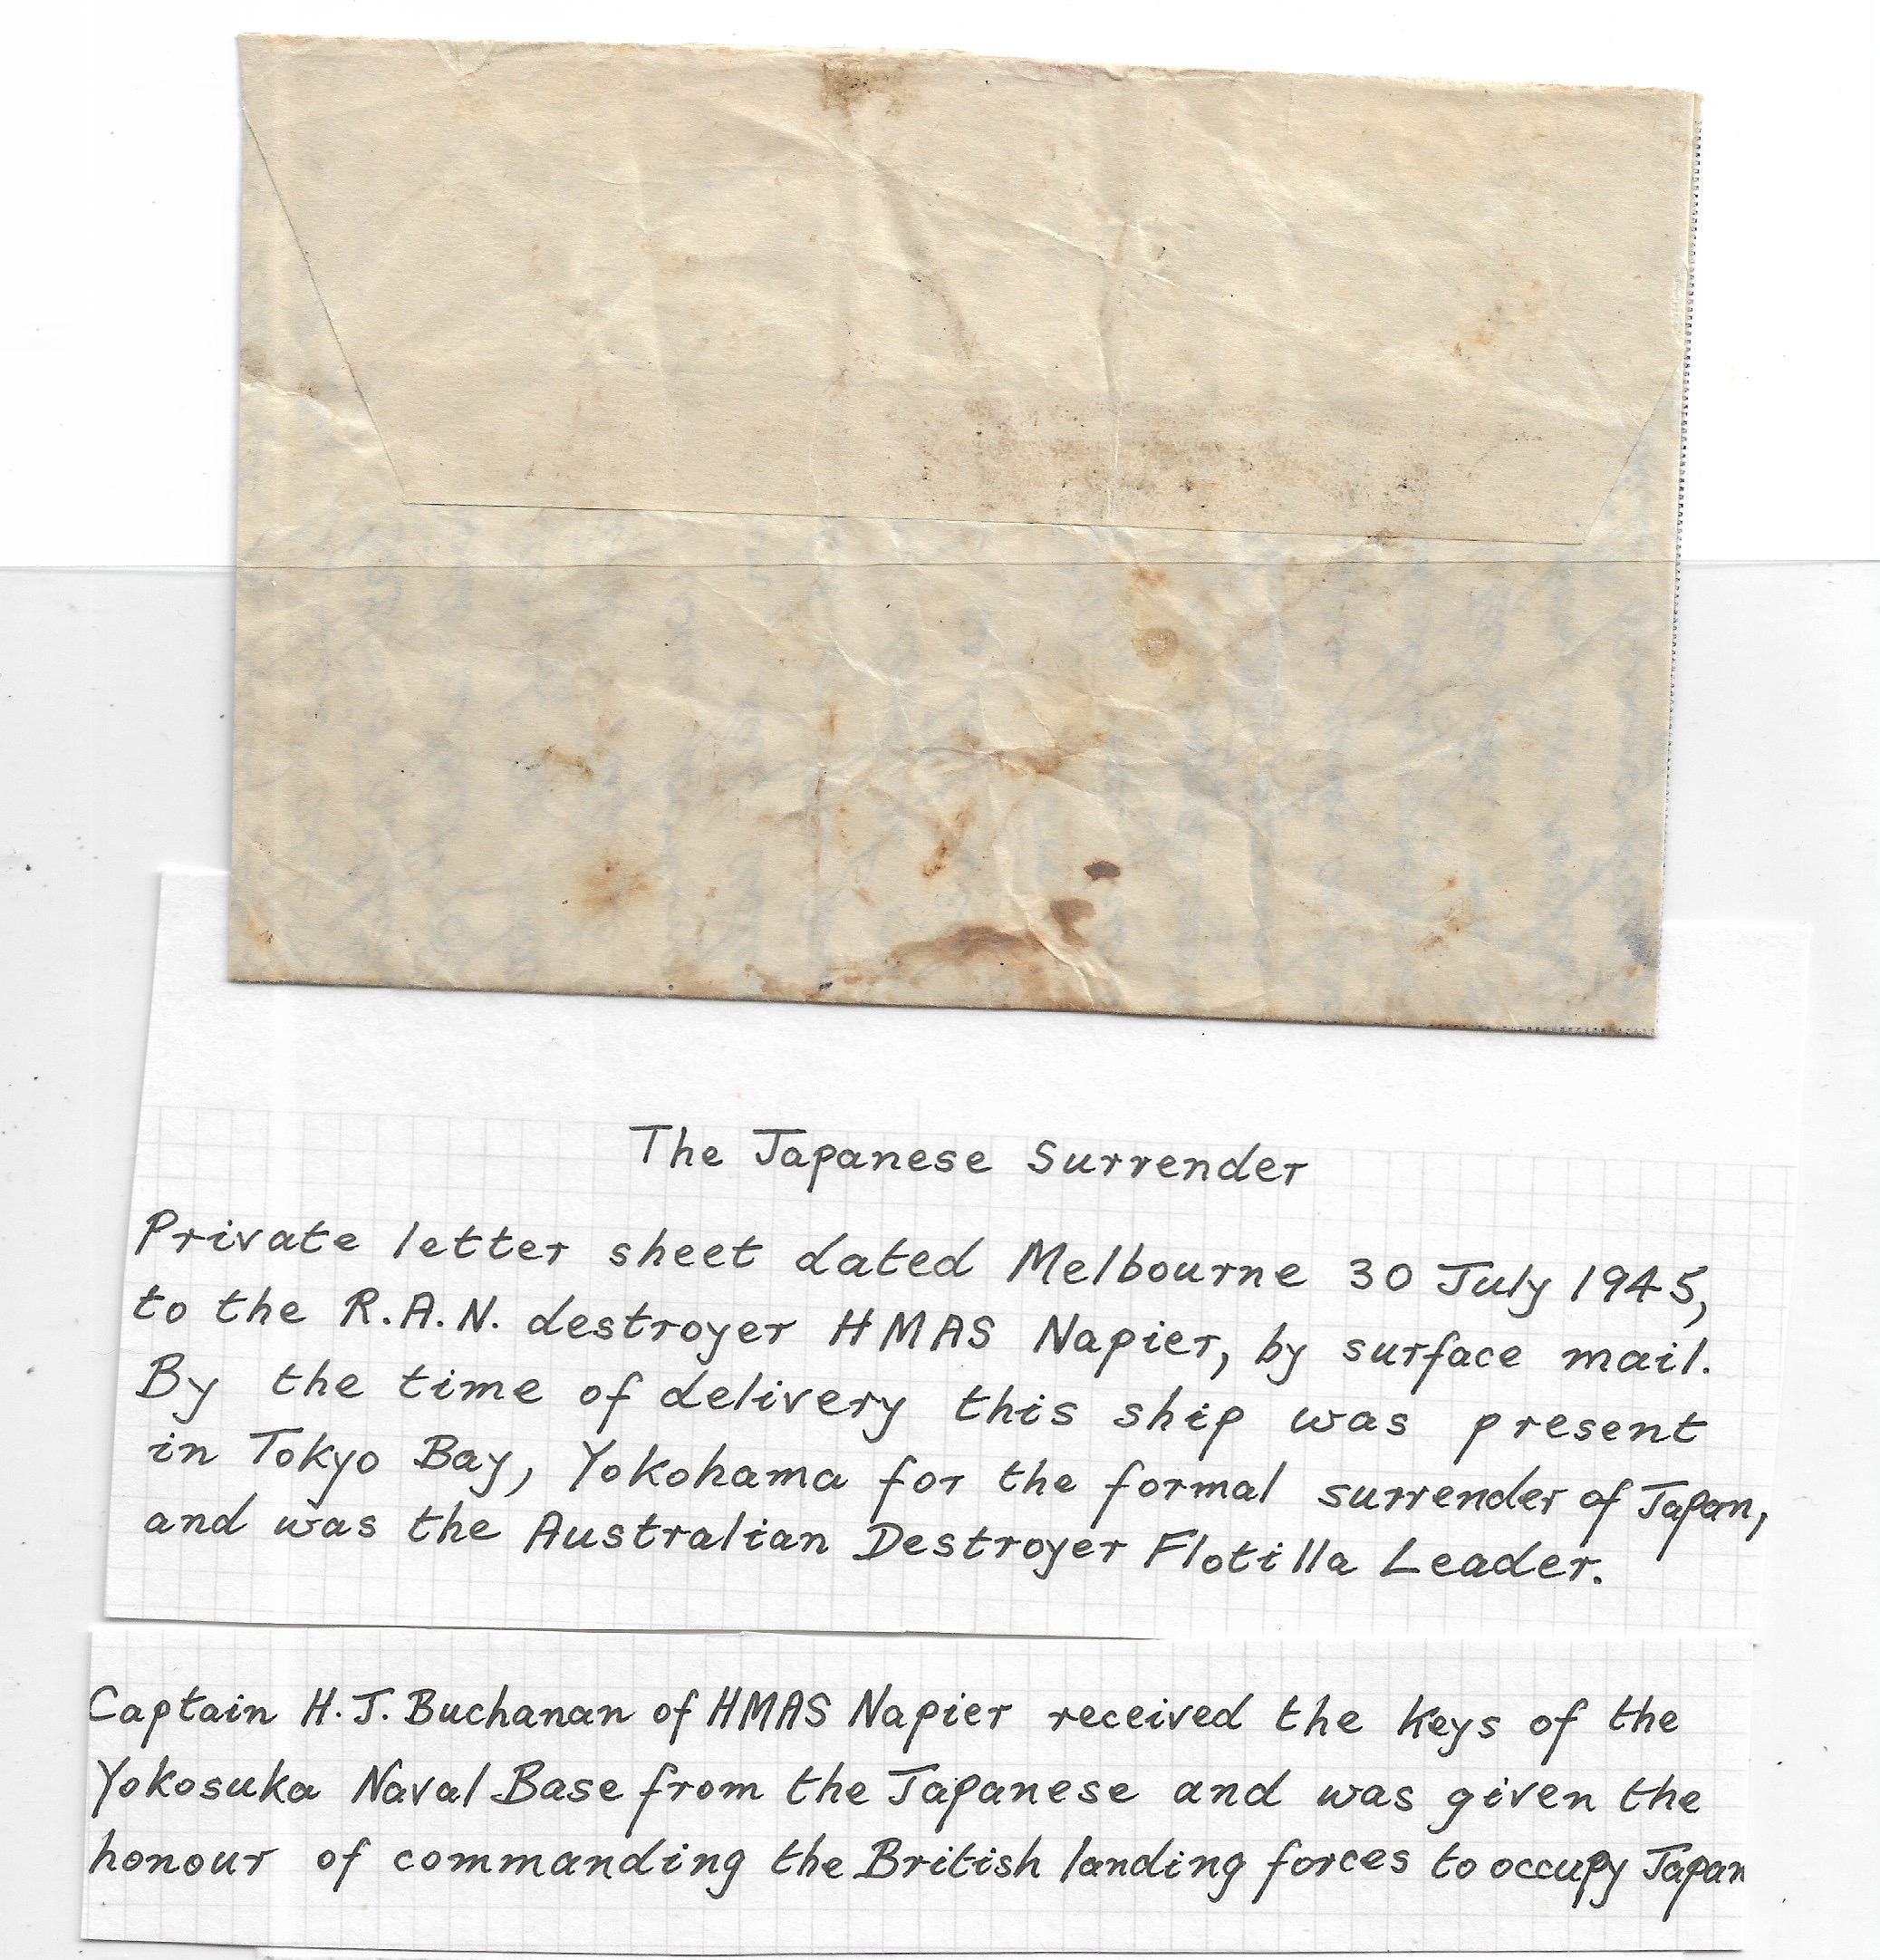 The Japanese Surrender
Private letter sheet dated Melbourne 30 July 1945,
to the R.A.N. destroyer HMAS Napier, by surface mail.
By the time of delivery this ship was present
in Tokyo Bay, Yokohama for the formal surrender of Japan,
and was the Australian Destroyer Flotilla Leader.
Captain H.J. Buchanan of HMAS Napier received the keys of the
Yokosuka Naval Base from the Japanese and was given the
honour of commanding the British landing forces to occupy Japan